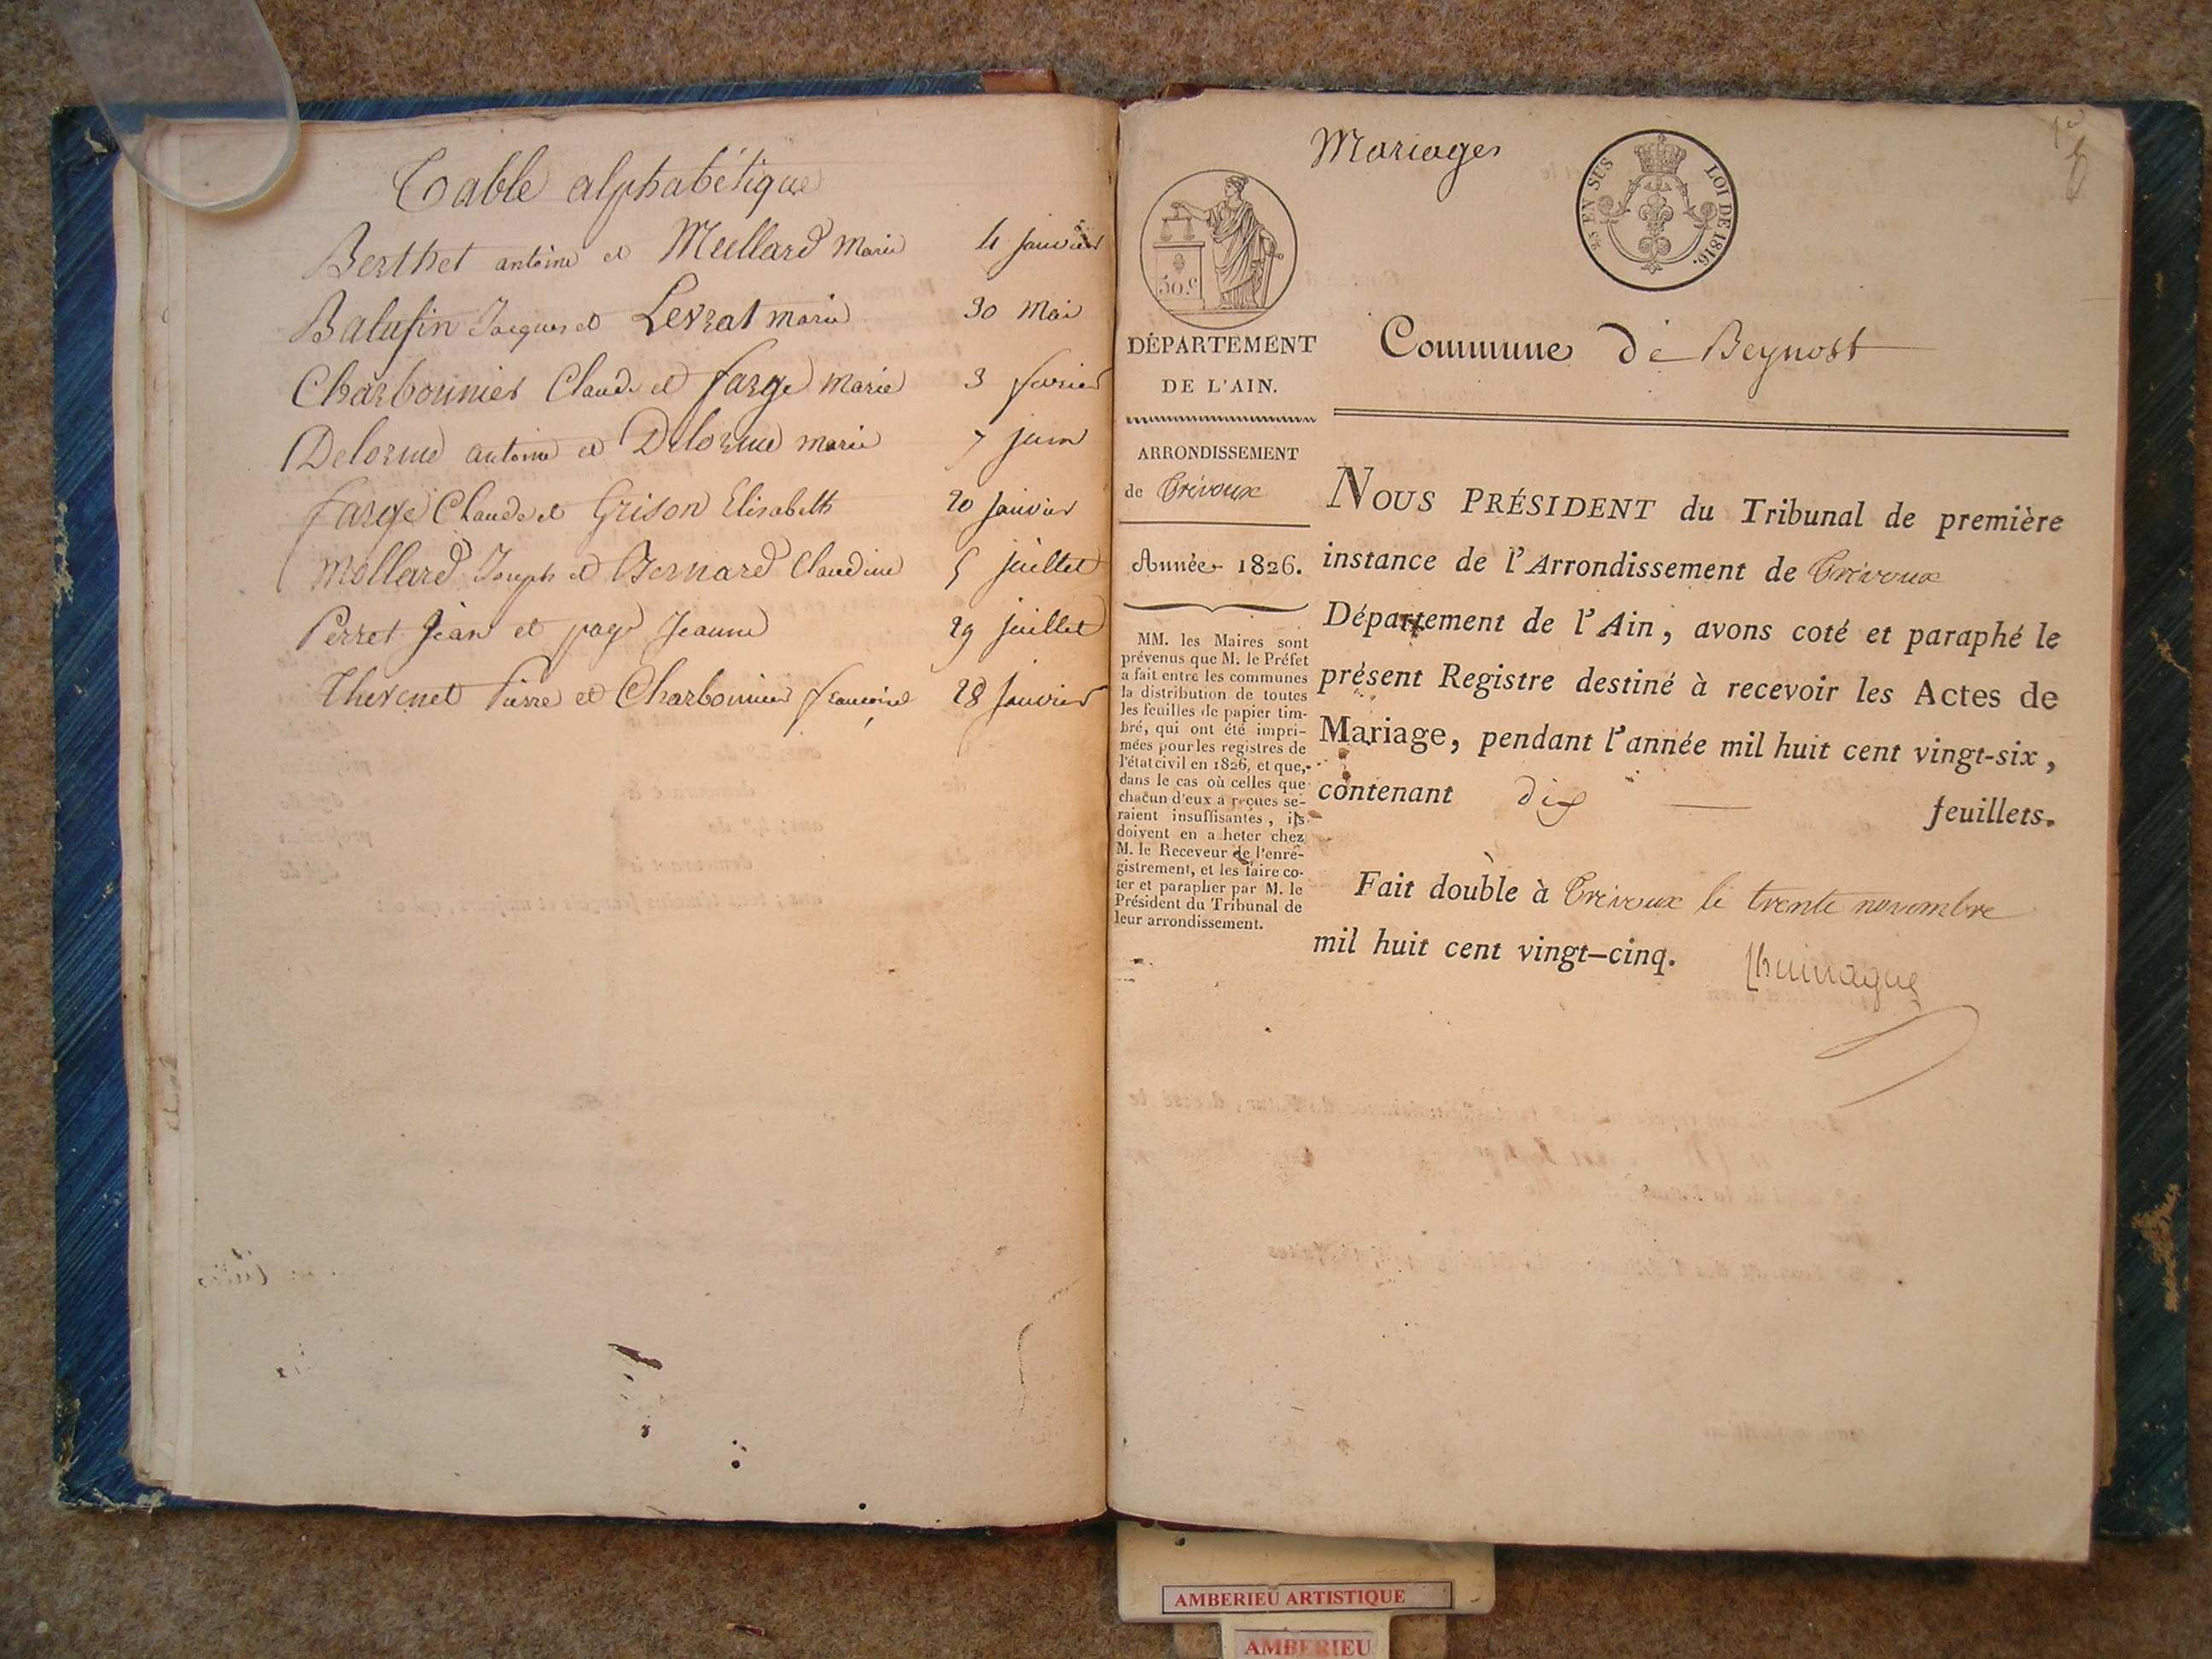 Table alphabétique
Berthet antoine et Mullard Marie 4 janvier
Balufin Jacques et Levrat marie 30 Mai
Charbonnier Claude et farge Marie 3 fevrier
Delorme antoine et Delorme marie 7 juin
farge Claude et Grison Elisabeth 20 janvier
Mollard Joseph et Bernard Claudine 5 juillet
Perret Jean et page Jeanne 29 juillet
Thevenet Pierre et Charbonnier françoise 28 Janvier
Mariages
EN SUS LOI DE 1816.
50.c
DÉPARTEMENT
DE L'AIN.
ARRONDISSEMENT
de Trévoux
Année 1826.
MM. les Maires sont
prévenus que M. le Préfet
a fait entre les communes
la distribution de toutes
les feuilles de papier tim-
bré, qui ont été impri-
mées pour les registres de
l'état civil en 1826, et que,
dans le cas où celles que
chacun d'eux a reçues se-
raient insuffisantes, ils
doivent en a heter chez
M. le Receveur de l'enre-
gistrement, et les faire co-
ter et parapher par M. le
Président du Tribunal de
leur arrondissement.
Commune de Beynost
NOUS PRÉSIDENT du Tribunal de première
instance de l'Arrondissement de Trévoux
Département de l'Ain, avons coté et paraphé le
présent Registre destiné à recevoir les Actes de
Mariage, pendant l'année mil huit cent vingt-six,
contenant dix feuillets.
Fait double à Trévoux le trente novembre
mil huit cent vingt-cinq.
AMBERIEU ARTISTIQUE
AMBERIEU